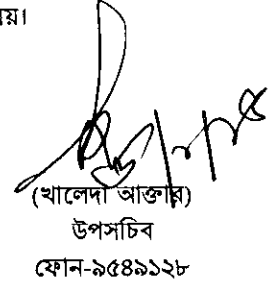 য়।
(খালেদা আক্তার)
উপসচিব
ফোন-৯৫৪৯১২৮